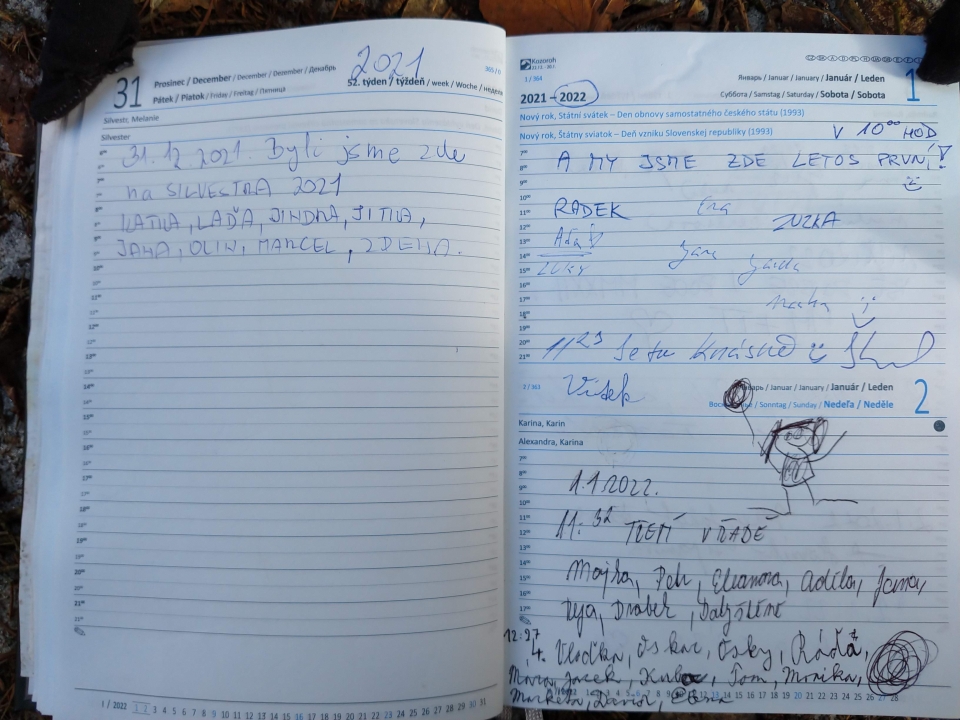 31
Prosinec / December / December / Dezember / Декабрь
Pátek / Piatok / Friday / Freitag / Пятница
2021
365/0
52. týden / týždeň / week / Woche /
Silvestr, Melanie
Silvester
31.12 2021. Byli jsme zde
na SILVESTRA 2021
KATKA, LAĎA, JINDRA, JITKA,
JANA, OLIN, MARCEL, ZDENA.
1 / 2022 1 2 3 4 5 6 7 8 9 10 11 12 13 14 15 16 17 18 19 20 21 22 23 24 25 26 27 28 29 30 31
Kozoroh
22.12. - 20.1.
1 / 364
Январь / Januar / January / Január / Leden
1
2021 – 2022
Суббота / Samstag / Saturday / Sobota / Sobota
Nový rok, Státní svátek – Den obnovy samostatného českého státu (1993)
Nový rok, Štátny sviatok – Deň vzniku Slovenskej republiky (1993)
V 10⁰⁰ HOD
A MY JSME ZDE LETOS PRVNÍ!
RADEK
ZUZKA
Jana
11²³ Je tu krásně
Vítek
2 / 363
Январь / Januar / January / Január / Leden
2
Sonntag / Sunday / Nedeľa / Neděle
Karina, Karin
Alexandra, Karina
1.1.2022.
11:32 TŘETÍ V ŘADĚ
Majka, Petr, Eleanora, Adéla, Jana,
12:27
4. Vlaďka, Oskar, Osky, Ráďa,
Jacek, Kuba, Tom, Monika,
Markéta, David,